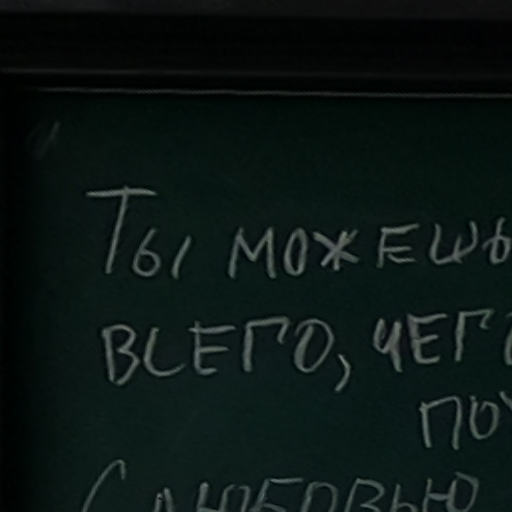 Ты можешь
всего, чего
по
С любовью